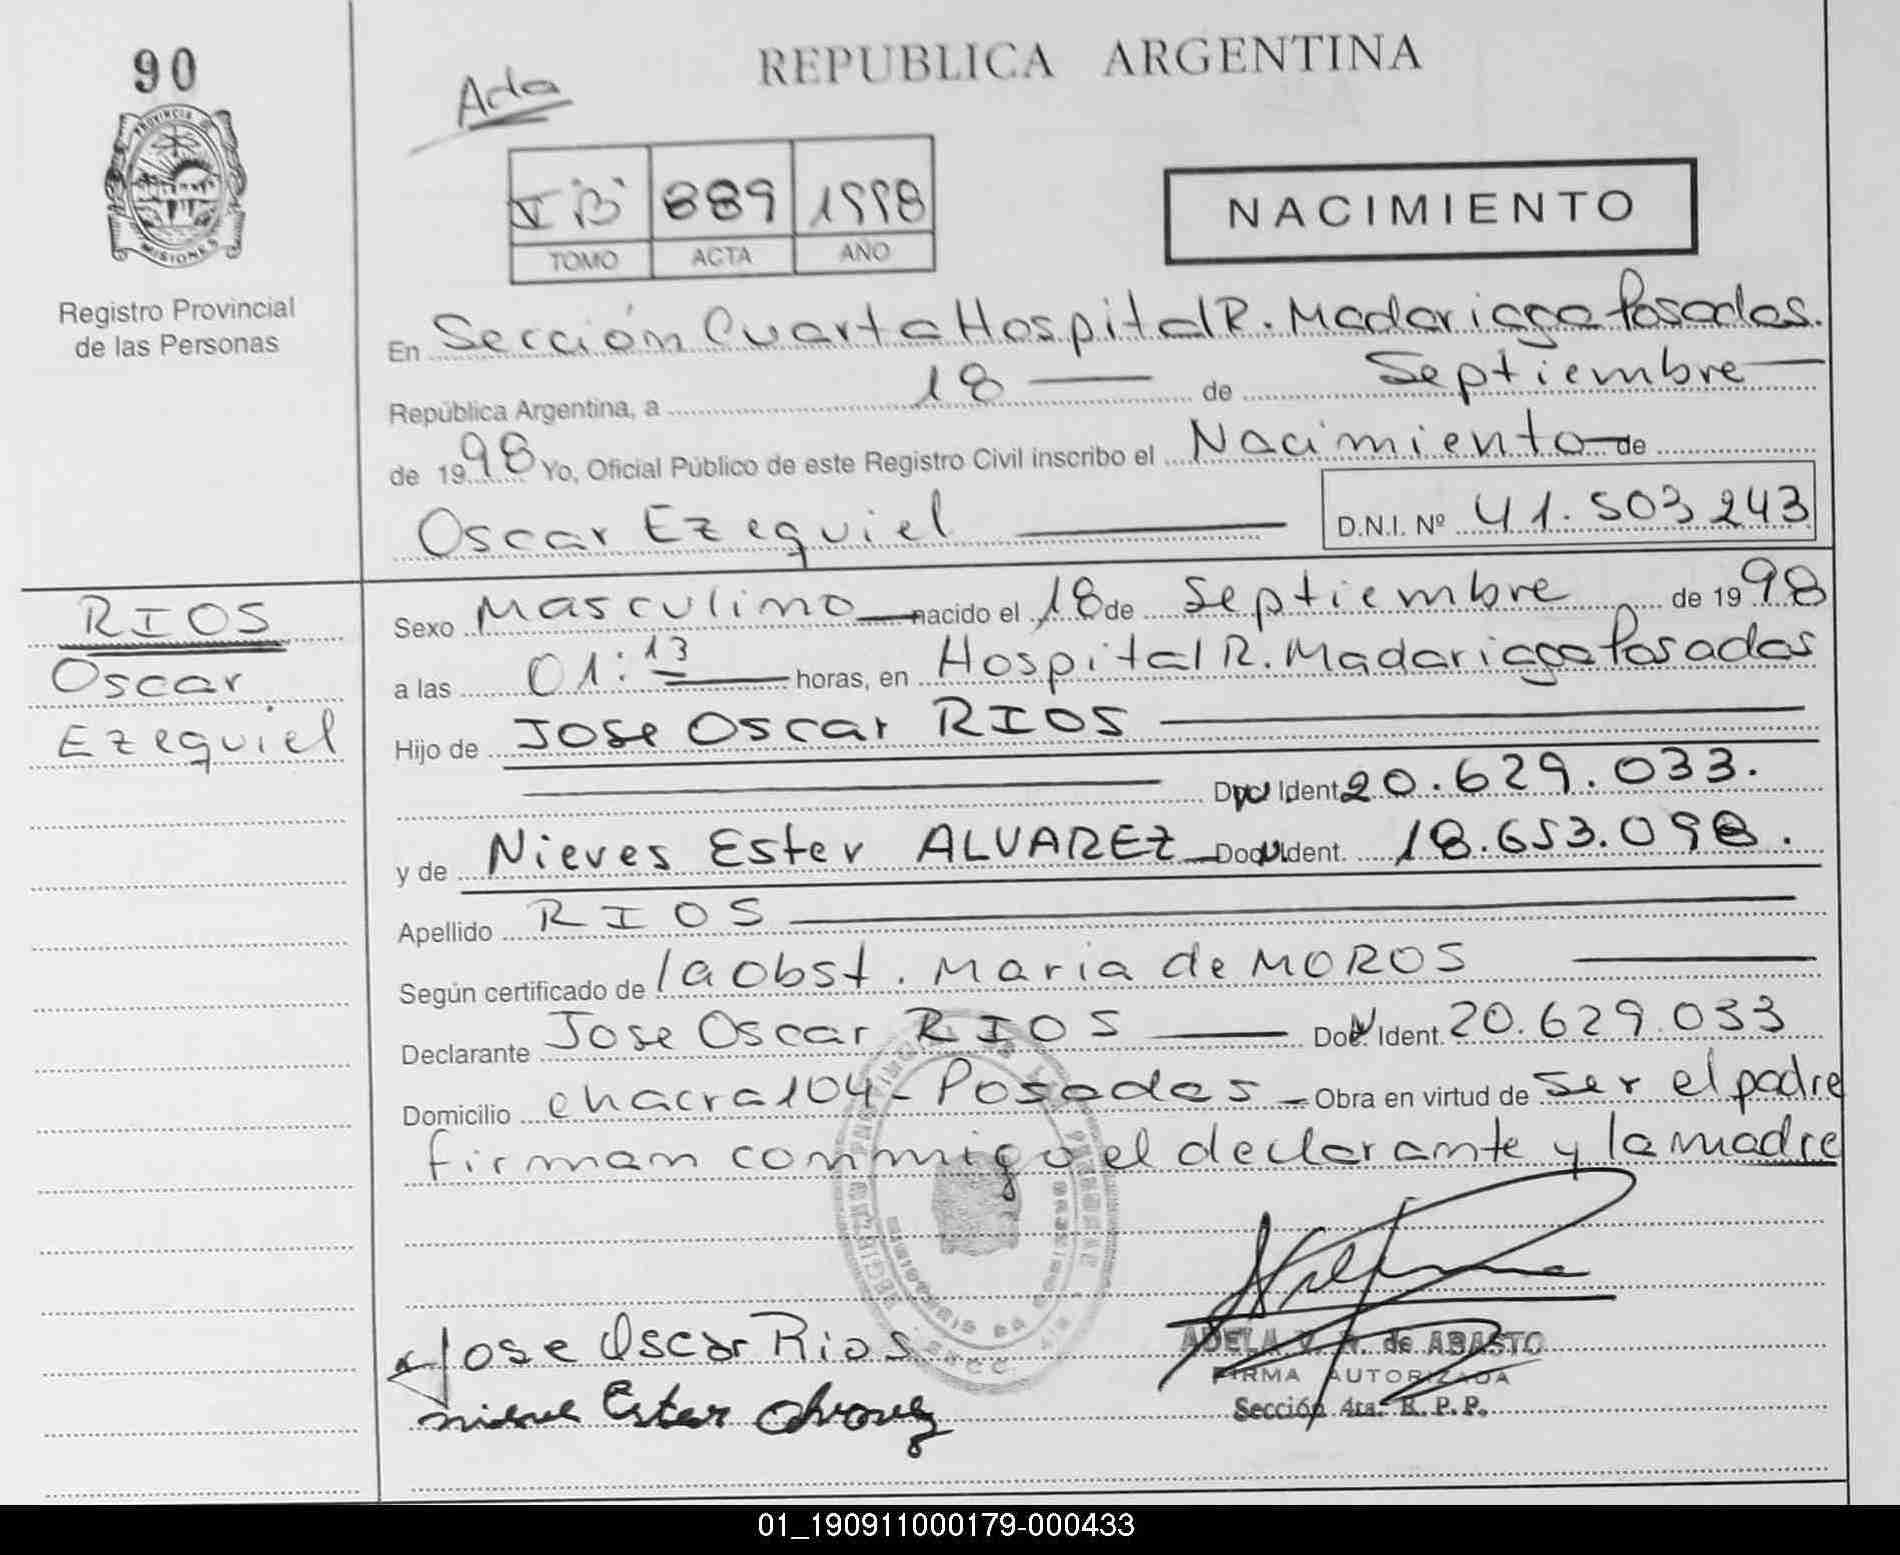 90
Acta
REPUBLICA ARGENTINA
I "B" 889 1998
TOMO ACTA AÑO
NACIMIENTO
PROVINCIA DE
MISIONES
Registro Provincial
de las Personas
En Sección Cuarta Hospital R. Madariaga Posadas.
República Argentina, a 18 de Septiembre
de 1998 Yo, Oficial Público de este Registro Civil inscribo el Nacimiento de
Oscar Ezequiel D.N.I. Nº 41.503 243
RIOS
Oscar
Ezequiel
Sexo Masculino nacido el 18 de Septiembre de 1998
a las 01:13 horas, en Hospital R. Madariaga Posadas
Hijo de Jose Oscar RIOS
Ident 20.629.033.
y de Nieves Ester ALVAREZ Doc. Ident. 18.653.098.
Apellido RIOS
Según certificado de la Obst. Maria de MOROS
Declarante Jose Oscar RIOS Doc. Ident. 20.629.033
Domicilio chacra 104 - Posadas Obra en virtud de ser el padre
firman conmigo el declarante y la madre
Jose Oscar Rios
Ester
ADELA V. de ABASTO
FIRMA AUTORIZADA
Sección 4ta. R. P. P.
01_190911000179-000433